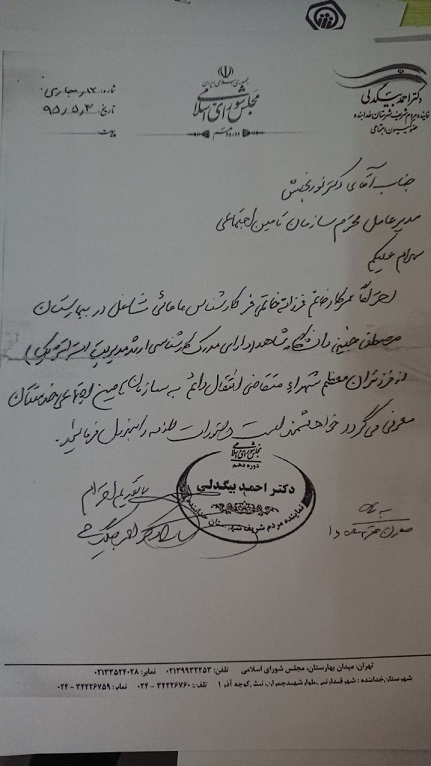 جمهوری اسلامی ایران
مجلس شورای اسلامی
دوره دهم
دکتر احمد بیگدلی
نماینده مردم شریف شهرستان خدابنده
عضو کمیسیون اجتماعی
شماره:
تاریخ: ۹۵/۵/۲
پیوست:
جناب آقای دکتر نوربخش
مدیر عامل محترم سازمان تامین اجتماعی
سلام علیکم
احتراماً سرکار خانم فرزانه خانقلی فر کارشناس مامائی شاغل در بیمارستان
مصطفی خمینی دانشگاه شاهد دارای مدرک کارشناسی ارشد مدیریت استراتژیک
از فرزندان معظم شهداء متقاضی انتقال دائم به سازمان تامین اجتماعی خدمتتان
معرفی می گردد خواهشمند است دستورات لازمه را مبذول فرمائید.
با تقدیم احترام
دکتر احمد بیگدلی
مجلس شورای اسلامی
دوره دهم
دکتر احمد بیگدلی
نماینده مردم شریف شهرستان خدابنده
تهران: میدان بهارستان، مجلس شورای اسلامی تلفن: ۰۲۱۳۹۹۳۲۲۵۳ نمابر: ۰۲۱۳۳۵۲۴۰۲۸
شهرستان خدابنده: شهر قیدار نبی، بلوار شهید چمران، نبش کوچه آذر ۱ تلفن: ۳۴۲۲۶۷۶۰ - ۰۲۴ نمابر: ۳۴۲۲۶۷۵۹ - ۰۲۴